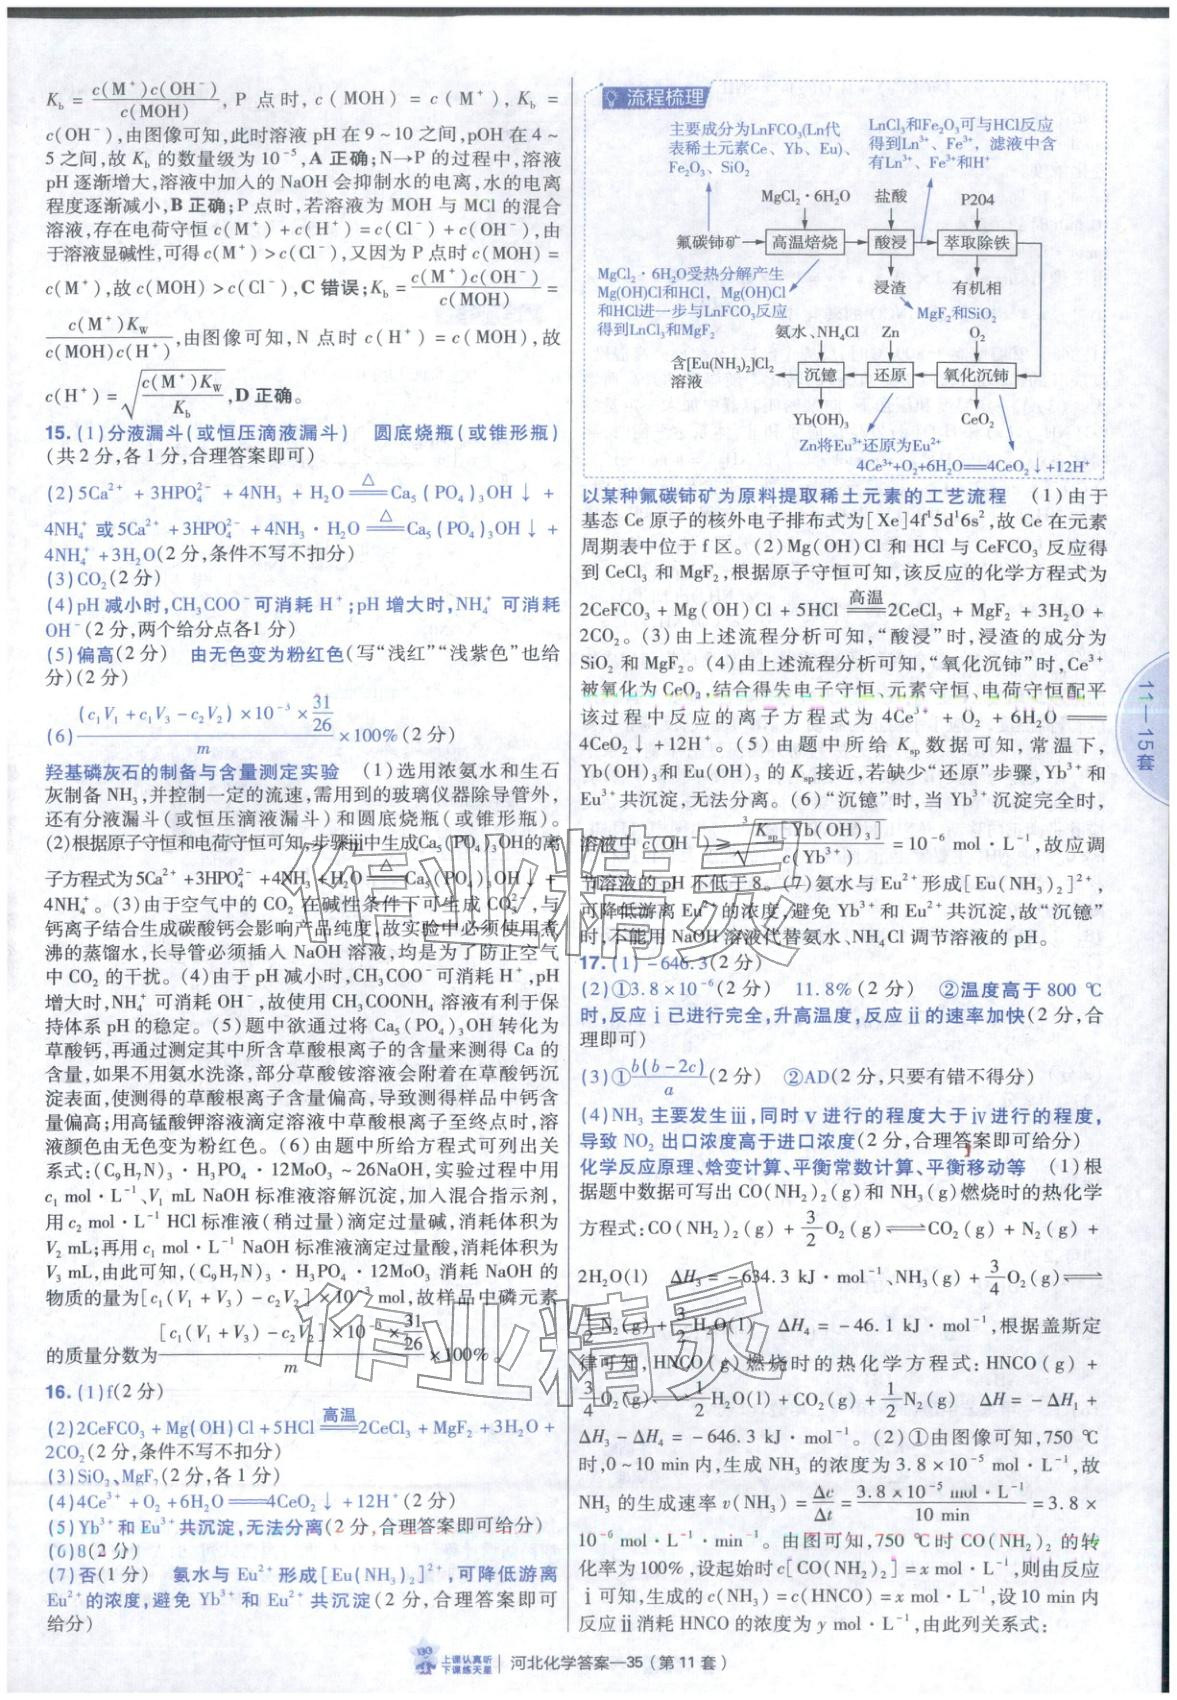 K_b = c(M⁺)c(OH⁻)/c(MOH), P 点时, c(MOH) = c(M⁺), K_b =
c(OH⁻),由图像可知,此时溶液 pH 在 9～10 之间,pOH 在 4～
5 之间,故 K_b 的数量级为 10⁻⁵,A 正确;N→P 的过程中,溶液
pH 逐渐增大,溶液中加入的 NaOH 会抑制水的电离,水的电离
程度逐渐减小,B 正确;P 点时,若溶液为 MOH 与 MCl 的混合
溶液,存在电荷守恒 c(M⁺) + c(H⁺) = c(Cl⁻) + c(OH⁻),由
于溶液显碱性,可得 c(M⁺) > c(Cl⁻),又因为 P 点时 c(MOH) =
c(M⁺),故 c(MOH) > c(Cl⁻),C 错误;K_b = c(M⁺)c(OH⁻)/c(MOH) =
c(M⁺)K_W/[c(MOH)c(H⁺)],由图像可知,N 点时 c(H⁺) = c(MOH),故
c(H⁺) = √(c(M⁺)K_W/K_b),D 正确。
15. (1)分液漏斗(或恒压滴液漏斗) 圆底烧瓶(或锥形瓶)
(共 2 分,各 1 分,合理答案即可)
(2)5Ca²⁺ + 3HPO₄²⁻ + 4NH₃ + H₂O =△= Ca₅(PO₄)₃OH↓ +
4NH₄⁺ 或 5Ca²⁺ + 3HPO₄²⁻ + 4NH₃·H₂O =△= Ca₅(PO₄)₃OH↓ +
4NH₄⁺ + 3H₂O(2 分,条件不写不扣分)
(3)CO₂(2 分)
(4)pH 减小时,CH₃COO⁻可消耗 H⁺;pH 增大时,NH₄⁺ 可消耗
OH⁻(2 分,两个给分点各1 分)
(5)偏高(2 分) 由无色变为粉红色(写“浅红”“浅紫色”也给
分)(2 分)
(6) (c₁V₁ + c₁V₃ − c₂V₂) × 10⁻³ × 31/26 / m × 100%(2 分)
羟基磷灰石的制备与含量测定实验 (1)选用浓氨水和生石
灰制备 NH₃,并控制一定的流速,需用到的玻璃仪器除导管外,
还有分液漏斗(或恒压滴液漏斗)和圆底烧瓶(或锥形瓶)。
(2)根据原子守恒和电荷守恒可知,步骤ⅲ中生成Ca₅(PO₄)₃OH的离
子方程式为 5Ca²⁺ + 3HPO₄²⁻ + 4NH₃ + H₂O =△= Ca₅(PO₄)₃OH↓ +
4NH₄⁺。(3)由于空气中的 CO₂ 在碱性条件下可生成 CO₃²⁻,与
钙离子结合生成碳酸钙会影响产品纯度,故实验中必须使用煮
沸的蒸馏水,长导管必须插入 NaOH 溶液,均是为了防止空气
中 CO₂ 的干扰。(4)由于 pH 减小时,CH₃COO⁻可消耗 H⁺,pH
增大时,NH₄⁺ 可消耗 OH⁻,故使用 CH₃COONH₄ 溶液有利于保
持体系 pH 的稳定。(5)题中欲通过将 Ca₅(PO₄)₃OH 转化为
草酸钙,再通过测定其中所含草酸根离子的含量来测得 Ca 的
含量,如果不用氨水洗涤,部分草酸铵溶液会附着在草酸钙沉
淀表面,使测得的草酸根离子含量偏高,导致测得样品中钙含
量偏高;用高锰酸钾溶液滴定溶液中草酸根离子至终点时,溶
液颜色由无色变为粉红色。(6)由题中所给方程式可列出关
系式:(C₉H₇N)₃·H₃PO₄·12MoO₃ ~ 26NaOH,实验过程中用
c₁ mol·L⁻¹、V₁ mL NaOH 标准液溶解沉淀,加入混合指示剂,
用 c₂ mol·L⁻¹ HCl 标准液(稍过量)滴定过量碱,消耗体积为
V₂ mL;再用 c₁ mol·L⁻¹ NaOH 标准液滴定过量酸,消耗体积为
V₃ mL,由此可知,(C₉H₇N)₃·H₃PO₄·12MoO₃ 消耗 NaOH 的
物质的量为[c₁(V₁ + V₃) − c₂V₂] × 10⁻³ mol,故样品中磷元素
的质量分数为 [c₁(V₁ + V₃) − c₂V₂] × 10⁻³ × 31/26 / m × 100%。
16. (1)f(2 分)
(2)2CeFCO₃ + Mg(OH)Cl + 5HCl =高温= 2CeCl₃ + MgF₂ + 3H₂O +
2CO₂(2 分,条件不写不扣分)
(3)SiO₂、MgF₂(2 分,各 1 分)
(4)4Ce³⁺ + O₂ + 6H₂O == 4CeO₂↓ + 12H⁺(2 分)
(5)Yb³⁺和 Eu³⁺共沉淀,无法分离(2 分,合理答案即可给分)
(6)8(2 分)
(7)否(1 分) 氨水与 Eu²⁺形成[Eu(NH₃)₂]²⁺,可降低游离
Eu²⁺的浓度,避免 Yb³⁺ 和 Eu²⁺ 共沉淀(2 分,合理答案即可
给分)
流程梳理
主要成分为LnFCO₃(Ln代
表稀土元素Ce、Yb、Eu)、
Fe₂O₃、SiO₂
LnCl₃和Fe₂O₃可与HCl反应
得到Ln³⁺、Fe³⁺,滤液中含
有Ln³⁺、Fe³⁺和H⁺
MgCl₂·6H₂O 盐酸 P204
氟碳铈矿 高温焙烧 酸浸 萃取除铁
MgCl₂·6H₂O受热分解产生
Mg(OH)Cl和HCl,Mg(OH)Cl
和HCl进一步与LnFCO₃反应
得到LnCl₃和MgF₂
浸渣 有机相
MgF₂和SiO₂
氨水、NH₄Cl Zn O₂
含[Eu(NH₃)₂]Cl₂
溶液
沉镱 还原 氧化沉铈
Yb(OH)₃ CeO₂
Zn将Eu³⁺还原为Eu²⁺
4Ce³⁺+O₂+6H₂O==4CeO₂↓+12H⁺
以某种氟碳铈矿为原料提取稀土元素的工艺流程 (1)由于
基态 Ce 原子的核外电子排布式为[Xe]4f¹5d¹6s²,故 Ce 在元素
周期表中位于 f 区。(2)Mg(OH)Cl 和 HCl 与 CeFCO₃ 反应得
到 CeCl₃ 和 MgF₂,根据原子守恒可知,该反应的化学方程式为
2CeFCO₃ + Mg(OH)Cl + 5HCl =高温= 2CeCl₃ + MgF₂ + 3H₂O +
2CO₂。(3)由上述流程分析可知,“酸浸”时,浸渣的成分为
SiO₂ 和 MgF₂。(4)由上述流程分析可知,“氧化沉铈”时,Ce³⁺
被氧化为 CeO₂,结合得失电子守恒、元素守恒、电荷守恒配平
该过程中反应的离子方程式为 4Ce³⁺ + O₂ + 6H₂O ==
4CeO₂↓ + 12H⁺。(5)由题中所给 K_sp 数据可知,常温下,
Yb(OH)₃和 Eu(OH)₃ 的 K_sp接近,若缺少“还原”步骤,Yb³⁺和
Eu³⁺共沉淀,无法分离。(6)“沉镱”时,当 Yb³⁺沉淀完全时,
溶液中 c(OH⁻) ≥ ³√(K_sp[Yb(OH)₃]/c(Yb³⁺)) = 10⁻⁶ mol·L⁻¹,故应调
节溶液的 pH 不低于 8。(7)氨水与 Eu²⁺形成[Eu(NH₃)₂]²⁺,
可降低游离 Eu²⁺的浓度,避免 Yb³⁺ 和 Eu²⁺共沉淀,故“沉镱”
时,不能用 NaOH 溶液代替氨水、NH₄Cl 调节溶液的 pH。
17. (1) −646.3(2 分)
(2)①3.8×10⁻⁶(2 分) 11.8%(2 分) ②温度高于 800 ℃
时,反应ⅰ已进行完全,升高温度,反应ⅱ的速率加快(2 分,合
理即可)
(3)① b(b−2c)/a (2 分) ②AD(2 分,只要有错不得分)
(4)NH₃ 主要发生ⅲ,同时ⅴ进行的程度大于ⅳ进行的程度,
导致 NO₂ 出口浓度高于进口浓度(2 分,合理答案即可给分)
化学反应原理、焓变计算、平衡常数计算、平衡移动等 (1)根
据题中数据可写出 CO(NH₂)₂(g)和 NH₃(g)燃烧时的热化学
方程式:CO(NH₂)₂(g) + 3/2 O₂(g) ⇌ CO₂(g) + N₂(g) +
2H₂O(l) ΔH₃ = −634.3 kJ·mol⁻¹、NH₃(g) + 3/4 O₂(g) ⇌
1/2 N₂(g) + 3/2 H₂O(l) ΔH₄ = −46.1 kJ·mol⁻¹,根据盖斯定
律可知,HNCO(g)燃烧时的热化学方程式:HNCO(g) +
3/4 O₂(g) ⇌ 1/2 H₂O(l) + CO₂(g) + 1/2 N₂(g) ΔH = −ΔH₁ +
ΔH₃ − ΔH₄ = −646.3 kJ·mol⁻¹。(2)①由图像可知,750 ℃
时,0～10 min 内,生成 NH₃ 的浓度为 3.8×10⁻⁵ mol·L⁻¹,故
NH₃ 的生成速率 v(NH₃) = Δc/Δt = 3.8×10⁻⁵ mol·L⁻¹/10 min = 3.8×
10⁻⁶ mol·L⁻¹·min⁻¹。由图可知,750 ℃时 CO(NH₂)₂ 的转
化率为100%,设起始时 c[CO(NH₂)₂] = x mol·L⁻¹,则由反应
ⅰ可知,生成的 c(NH₃) = c(HNCO) = x mol·L⁻¹,设 10 min 内
反应ⅱ消耗 HNCO 的浓度为 y mol·L⁻¹,由此列关系式:
11—15套
上课认真听
下课练天星
河北化学答案—35(第 11 套)
作业精灵
作业精灵